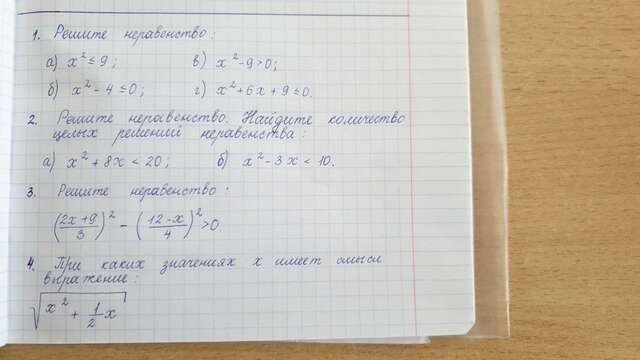 1. Решите неравенство:
а) x² ≤ 9; в) x² - 9 > 0;
б) x² - 4 ≤ 0; г) x² + 6x + 9 ≤ 0.
2. Решите неравенство. Найдите количество
целых решений неравенства:
а) x² + 8x < 20; б) x² - 3x < 10.
3. Решите неравенство:
((2x+9)/3)² - ((12-x)/4)² > 0.
4. При каких значениях x имеет смысл
выражение:
√(x² + 1/2 x)